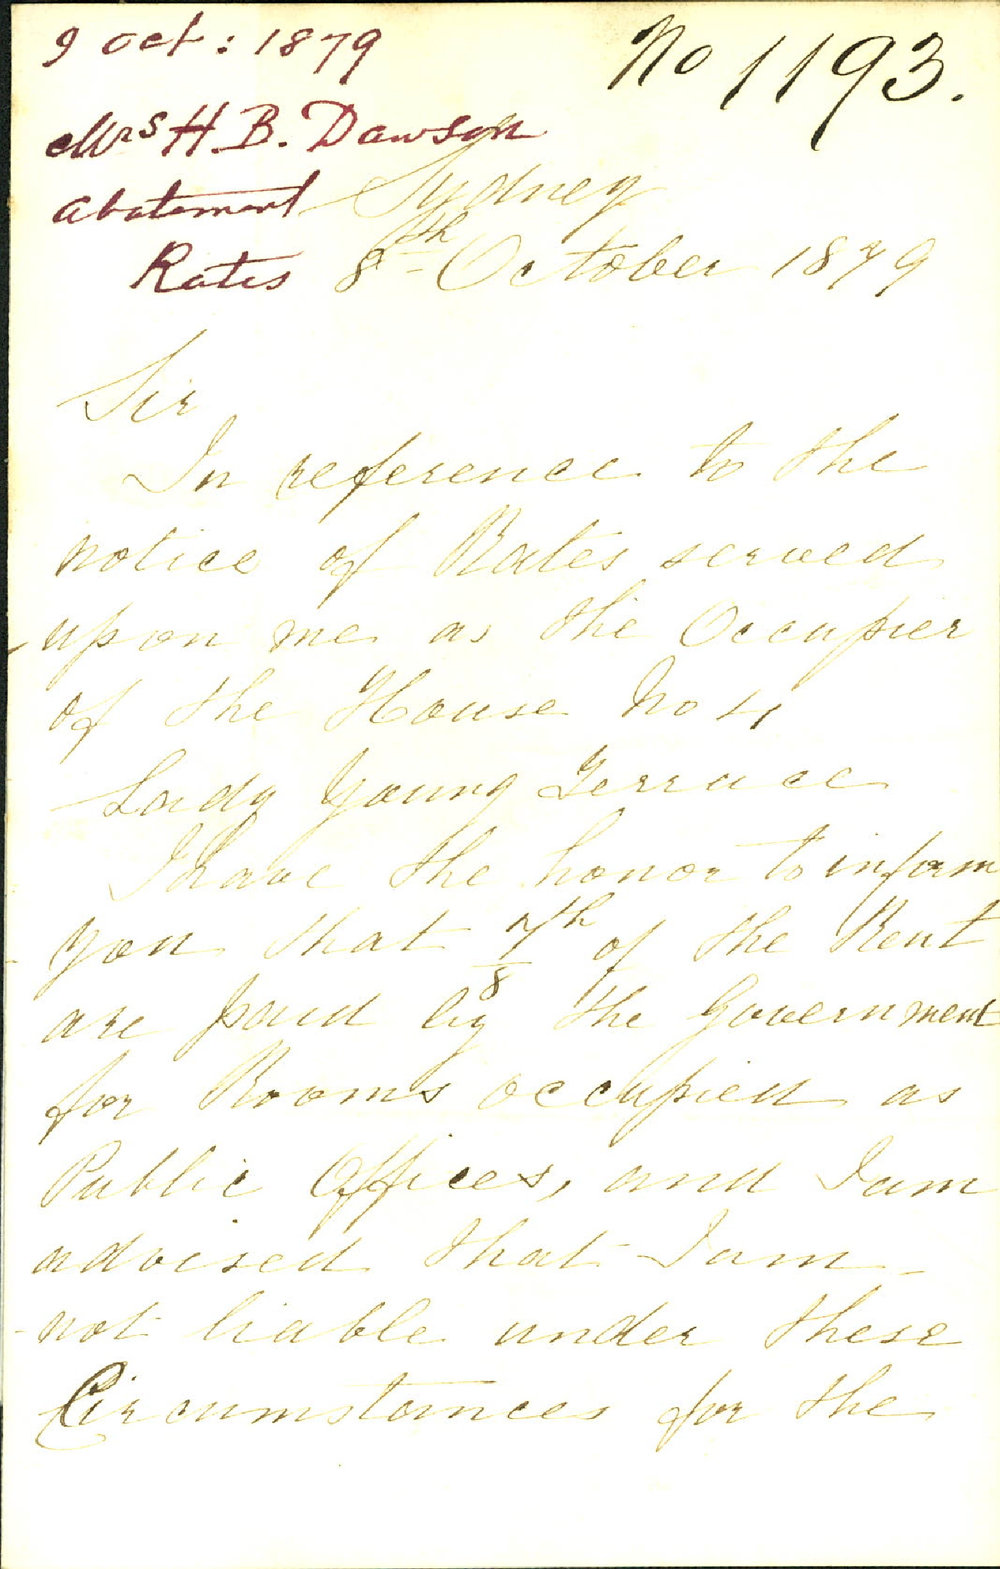 9 Oct: 1879
No 1193.
Mrs H. B. Dawson
Abatement
Rates
Sydney
8th October 1879
Sir
In reference to the
notice of Rates served
upon me as the Occupier
of the House No 4
Lady Young Terrace
I have the honor to inform
you that 7/8th of the Rent
are paid by the Government
for Rooms occupied as
Public Offices, and I am
advised that I am
not liable under these
Circumstances for the